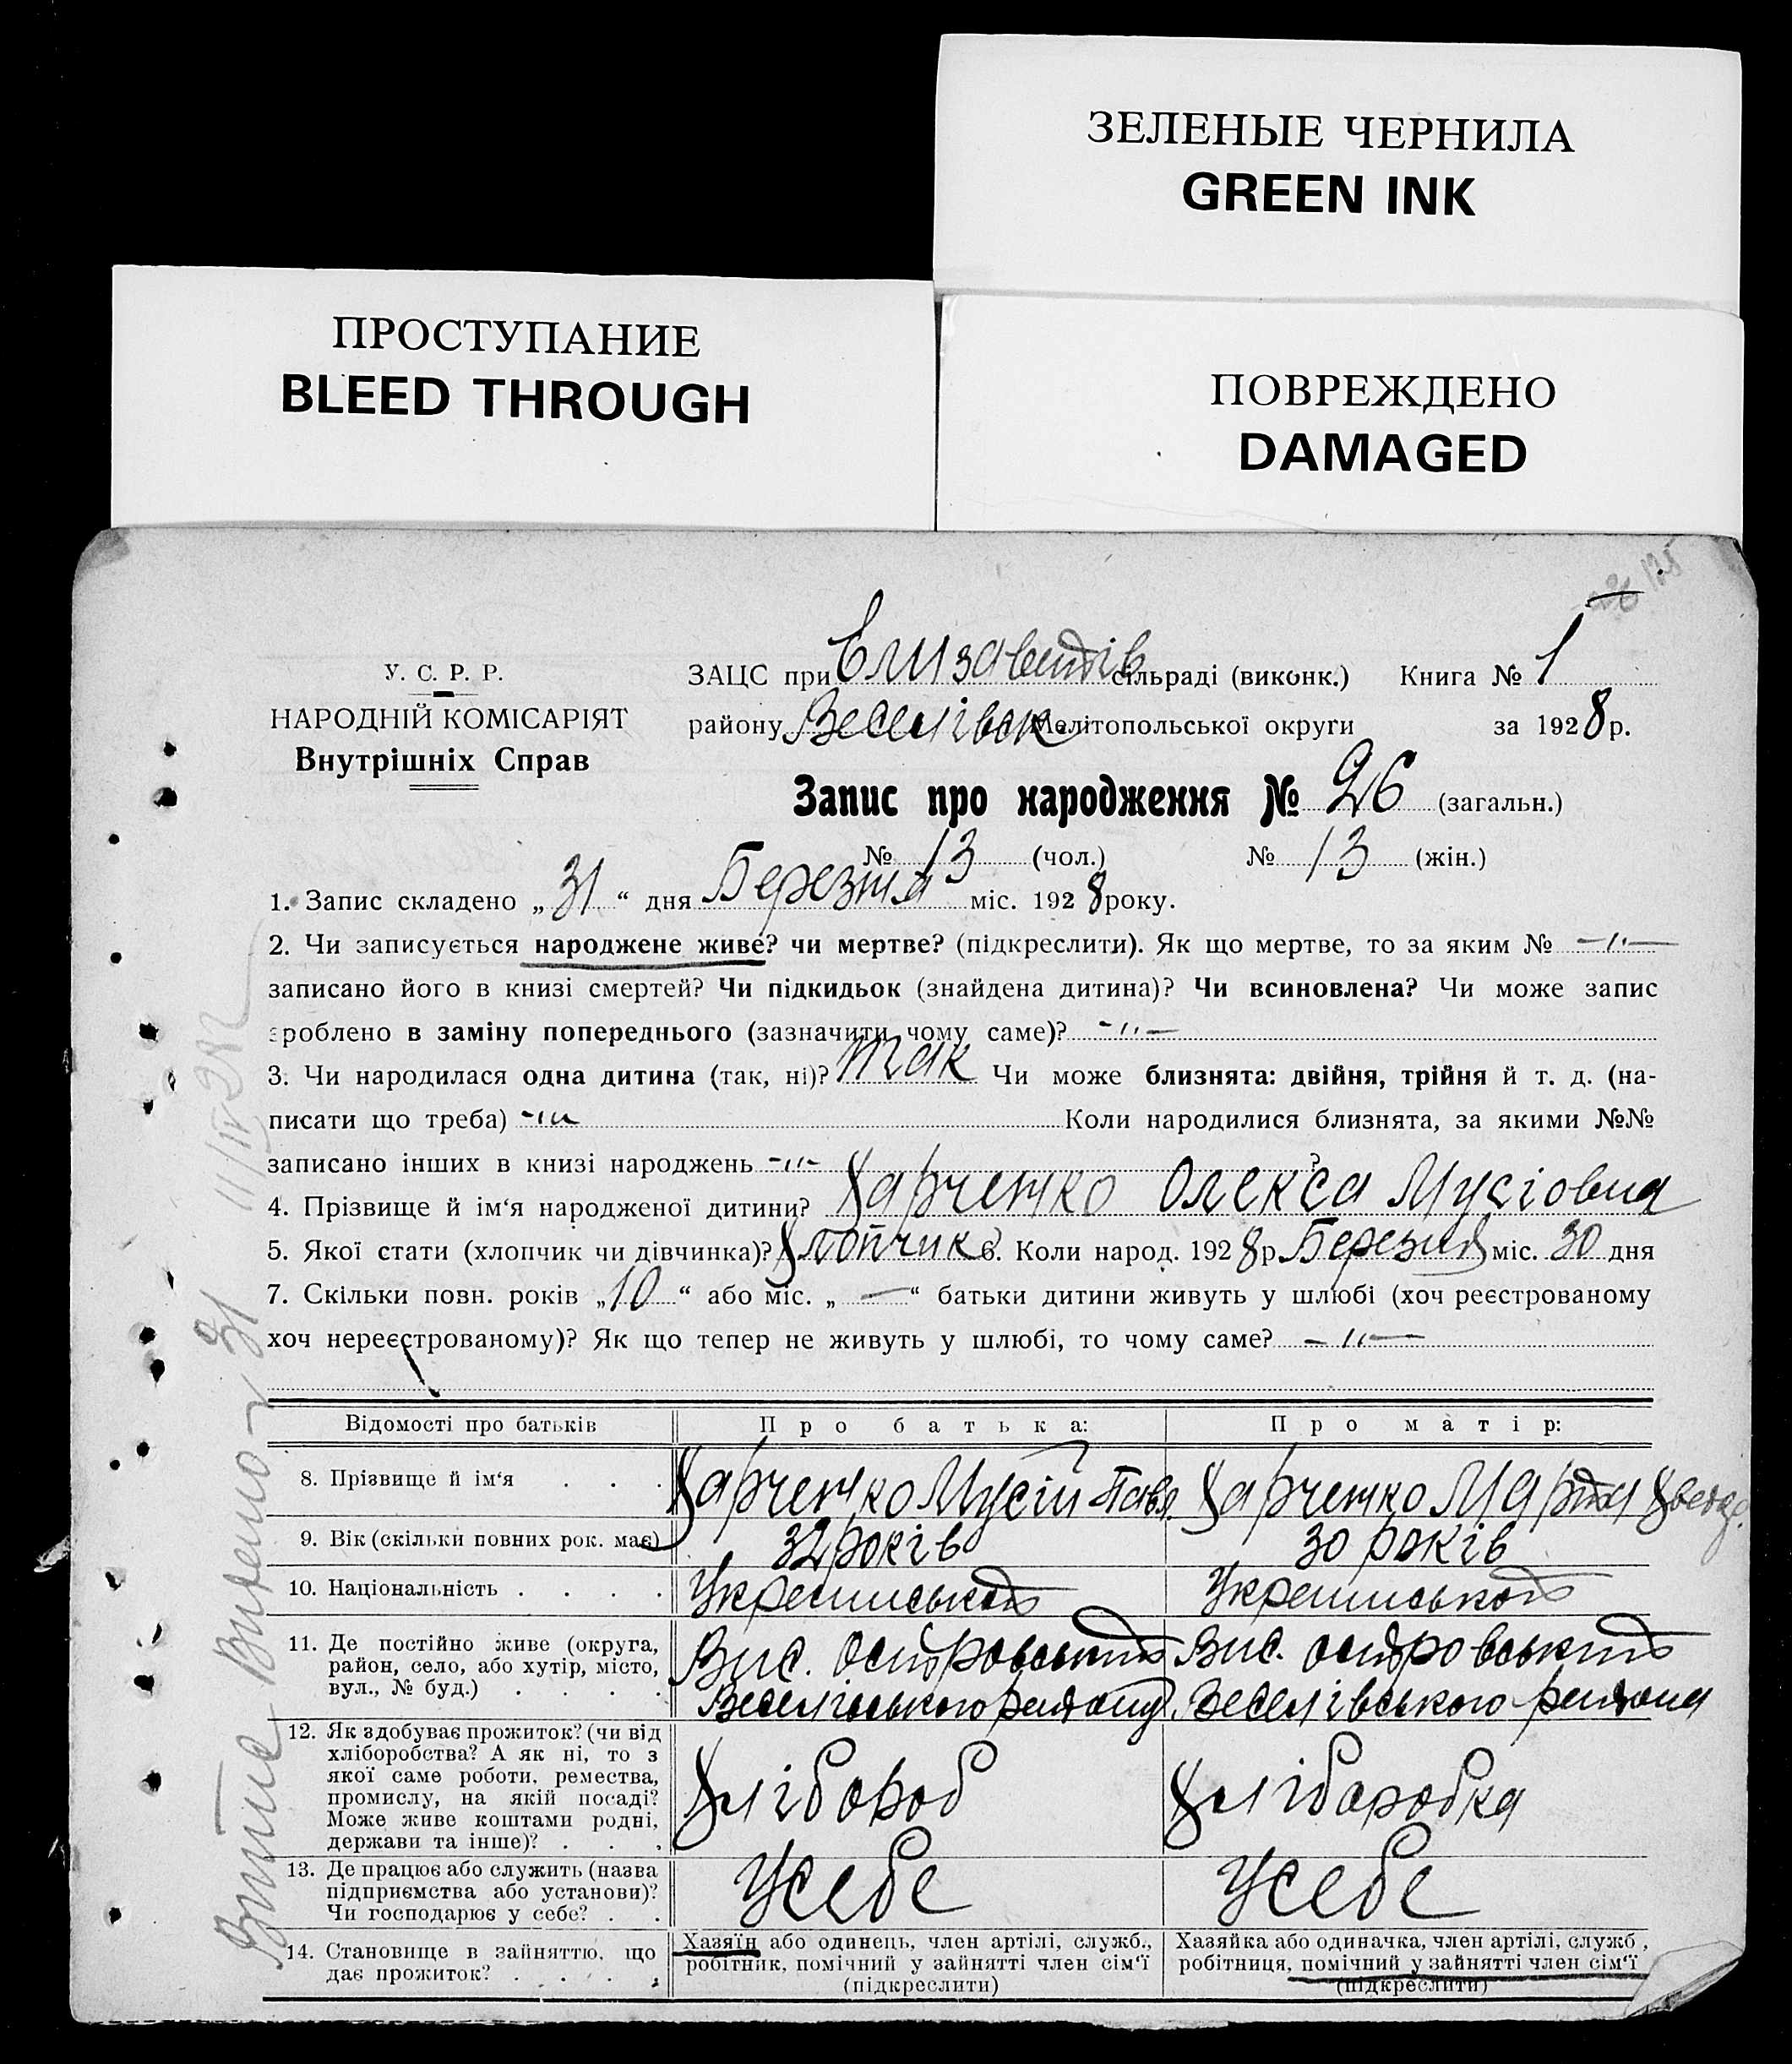 ЗЕЛЕНЫЕ ЧЕРНИЛА
GREEN INK
ПРОСТУПАНИЕ
BLEED THROUGH
ПОВРЕЖДЕНО
DAMAGED
У. С. Р. Р.
НАРОДНІЙ КОМІСАРІЯТ
Внутрішніх Справ
ЗАЦС при Єлизаветів сільраді (виконк.) Книга № 1
району Веселівськ Мелітопольської округи за 1928 р.
Запис про народження № 26 (загальн.)
№ 13 (чол.) № 13 (жін.)
1. Запис складено „31“ дня Березня міс. 1928 року.
2. Чи записується народжене живе? чи мертве? (підкреслити). Як що мертве, то за яким № -"-
записано його в книзі смертей? Чи підкидьок (знайдена дитина)? Чи всиновлена? Чи може запис
зроблено в заміну попереднього (зазначити чому саме)? -"-
3. Чи народилася одна дитина (так, ні)? так Чи може близнята: двійня, трійня й т. д. (на-
писати що треба) -"- Коли народилися близнята, за якими №№
записано інших в книзі народжень -"- ?
4. Прізвище й ім‘я народженої дитини? Харченко Олекса Мусіовна
5. Якої стати (хлопчик чи дівчинка)? Хлопчик 6. Коли народ. 1928 р. Березня міс. 30 дня
7. Скільки повн. років „10“ або міс. „—“ батьки дитини живуть у шлюбі (хоч реєстрованому
хоч нереєстрованому)? Як що тепер не живуть у шлюбі, то чому саме? -"-
Відомості про батьків Про батька: Про матір:
8. Прізвище й ім‘я . . . Харченко Мусій Павл. Харченко Марта
9. Вік (скільки повних рок. має) 32 років 30 років
10. Національність . . . . Украиньськ Украиньськ
11. Де постійно живе (округа,
район, село, або хутір, місто,
вул., № буд.) . . . .
Вис. Островськ
Веселівського району
Вис. Островськ
Веселівського района
12. Як здобуває прожиток? (чи від
хліборобства? А як ні, то з
якої саме роботи, ремества,
промислу, на якій посаді?
Може живе коштами родні,
держави та інше)? . . .
Хлібороб Хлібаробка
13. Де працює або служить (назва
підприємства або установи)?
Чи господарює у себе? . .
Усебе Усебе
14. Становище в зайняттю, що
дає прожиток? . . . . .
Хазяїн або одинець, член артілі, служб.,
робітник, помічний у зайнятті член сім‘ї
(підкреслити)
Хазяйка або одиначка, член артілі, служб.,
робітниця, помічний у зайнятті член сім‘ї
(підкреслити)